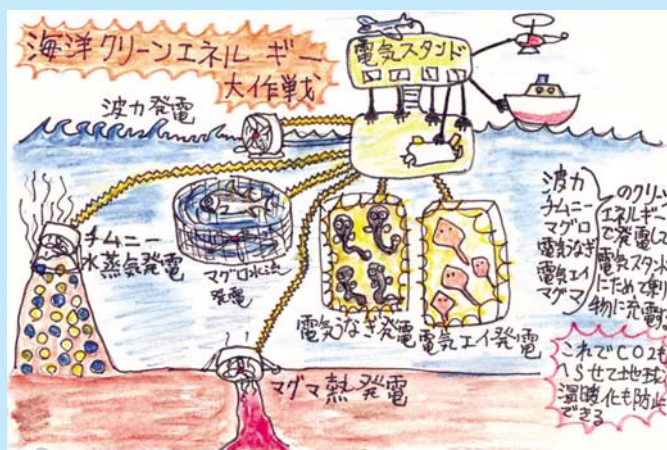 海洋クリーンエネルギー
大作戦
電気スタンド
波力発電
チムニー
水蒸気発電
マグロ水流
発電
電気うなぎ発電
電気エイ発電
マグマ熱発電
波力
チムニー
マグロ
電気うなぎ
電気エイ
マグマ
のクリーン
エネルギー
で発電して
電気スタンド
にためて乗り
物に充電す
これでCO2も
へらせて地球
温暖化も防止
できる